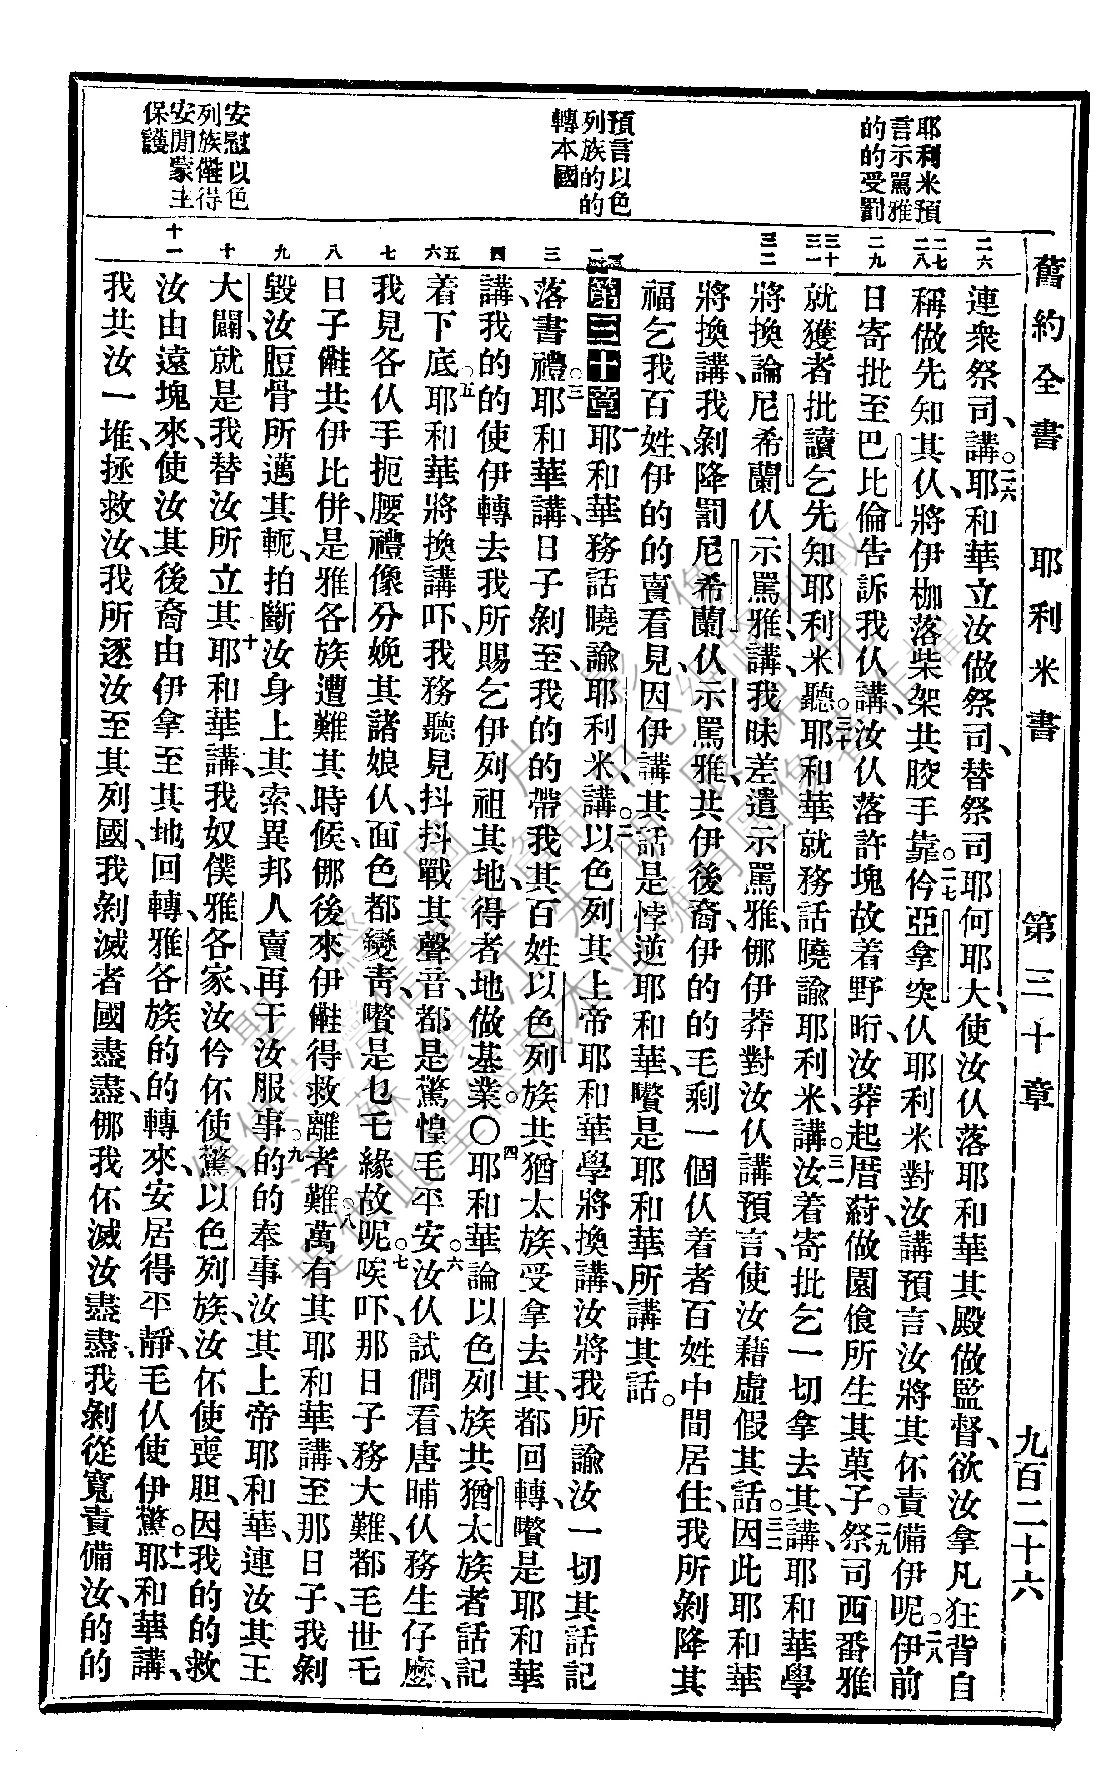 舊約全書 耶利米書 第三十章 九百二十六
耶利米預
言示罵雅
的的受罰
預言以色
列族的的
轉本國
安慰以色
列族儺得
安閒蒙主
保護
二六
二七
二八
二九
三十
三一
三二
二
三
四
五
六
七
八
九
十
十一
連衆祭司講、〇二六耶和華立汝做祭司、替祭司耶何耶大、使汝仫落耶和華其殿做監督、欲汝拿凡狂背自
稱做先知其仫、將伊枷落柴架共胶手靠。〇二七伶亞拿突仫耶利米對汝講預言、汝將其伓責備伊呢。〇二八伊前
日寄批至巴比倫告訴我仫講、汝仫落許塊故着野𥅽、汝莽起厝、蒔做園、飡所生其菓子。〇二九祭司西番雅
就獲者批讀乞先知耶利米聽、〇三十耶和華就務話曉諭耶利米講、〇三一汝着寄批乞一切拿去其、講耶和華學
將換論尼希蘭仫示罵雅講、我昧差遣示罵雅、㑚伊莽對汝仫講預言、使汝藉虛假其話。〇三二因此耶和華
將換講、我剝降罰尼希蘭仫示罵雅、共伊後裔、伊的的毛剩一個仫着者百姓中間居住、我所剝降其
福乞我百姓、伊的的賣看見、因伊講其話是悖逆耶和華、嚽是耶和華所講其話。
第三十章 一耶和華務話曉諭耶利米講。〇二以色列其上帝耶和華學將換講、汝將我所諭汝一切其話記
落書禮。〇三耶和華講、日子剝至、我的的帶我其百姓以色列族共猶太族受拿去其、都回轉、嚽是耶和華
講、我的的使伊轉去我所賜乞伊列祖其地、得者地做基業。〇四耶和華論以色列族共猶太族者話記
着下底。〇五耶和華將換講、吓、我務聽見抖抖戰其聲音、都是驚惶毛平安。〇六汝仫試倜看、唐晡仫務生仔麽、
我見各仫手扼腰禮、像分娩其諸娘仫、面色都變靑、嚽是乜毛緣故呢。〇七唉吓、那日子務大難、都毛世乇
日子儺共伊比併、是雅各族遭難其時候、㑚後來伊儺得救離者難。〇八萬有其耶和華講、至那日子、我剝
毀汝脰骨所邁其軛、拍斷汝身上其索、異邦人賣再干汝服事。〇九的的奉事汝其上帝耶和華、連汝其王
大闢、就是我替汝所立其。〇十耶和華講、我奴僕雅各家、汝伶伓使驚、以色列族、汝伓使喪胆、因我的的救
汝由遠塊來、使汝其後裔由伊拿至其地回轉、雅各族的的轉來、安居得平靜、毛仫使伊驚。〇十一耶和華講、
我共汝一堆、拯救汝、我所逐汝至其列國、我剝滅者國盡盡、㑚我伓滅汝盡盡、我剝從寬責備汝、的的